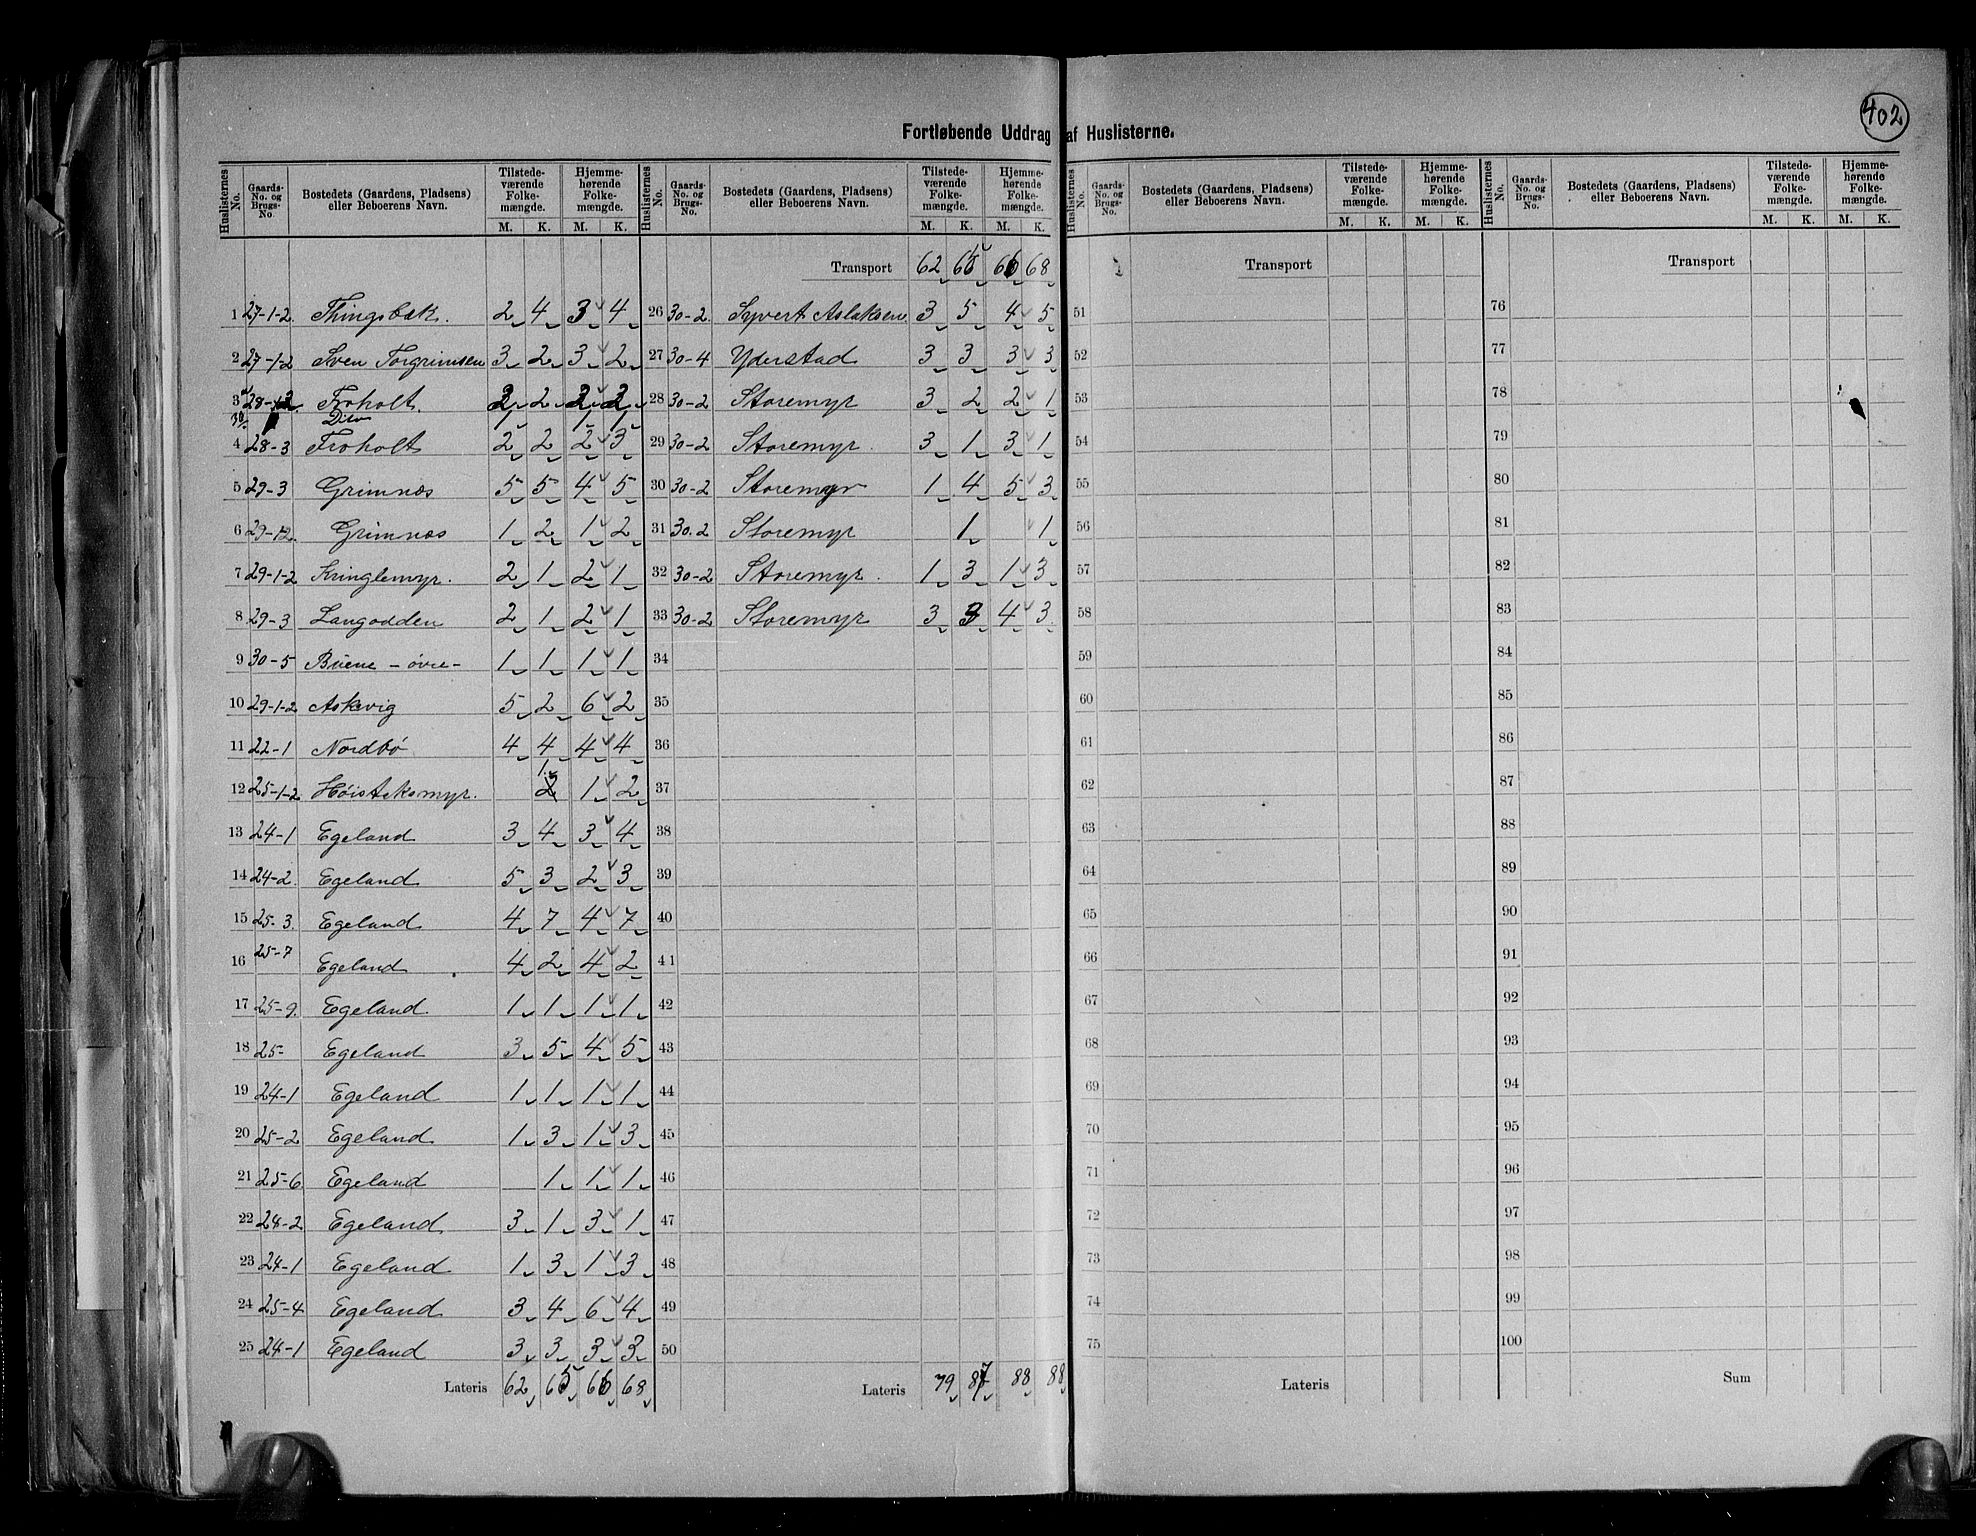 402
Fortløbende Uddrag af Huslisterne.
Huslisternes No. Gaards-No. og Brugs-No. Bostedets (Gaardens, Pladsens) eller Beboerens Navn. Tilstede-værende Folke-mængde. M. K. Hjemme-hørende Folke-mængde. M. K.
1 27-1-2 Thingsbæk. 2 4 3 4
2 27-1-2 Sven Torgrimsen 3 2 3 2
3 28-1-2 Froholt. 2 2 2 2
Dito 1 1 1
4 28-3 Froholt 2 2 2 3
5 29-3 Grimnæs 5 5 4 5
6 29-12 Grimnæs 1 2 1 2
7 29-1-2 Kringlemyr. 2 1 2 1
8 29-3 Langodden 2 1 2 1
9 30-5 Buene - øvre - 1 1 1 1
10 29-1-2 Askevig 5 2 6 2
11 22-1 Nordbø 4 4 4 4
12 25-1-2 Høistaksmyr. 1 1 2
13 24-1 Egeland 3 4 3 4
14 24-2 Egeland 5 3 2 3
15 25-3 Egeland 4 7 4 7
16 25-7 Egeland 4 2 4 2
17 25-9 Egeland 1 1 1 1
18 25- Egeland 3 5 4 5
19 24-1 Egeland 1 1 1 1
20 25-2 Egeland 1 3 1 3
21 25-6 Egeland 1 1 1
22 24-2 Egeland 3 1 3 1
23 24-1 Egeland 1 3 1 3
24 25-4 Egeland 3 4 6 4
25 24-1 Egeland 3 3 3 3
Lateris 62 65 66 68
Huslisternes No. Gaards-No. og Brugs-No. Bostedets (Gaardens, Pladsens) eller Beboerens Navn. Tilstede-værende Folke-mængde. M. K. Hjemme-hørende Folke-mængde. M. K.
Transport 62 65 66 68
26 30-2 Syvert Aslaksen 3 5 4 5
27 30-4 Yderstad 3 3 3 3
28 30-2 Storemyr 3 2 2 1
29 30-2 Storemyr. 3 1 3 1
30 30-2 Storemyr 1 4 5 3
31 30.2 Storemyr 1 1
32 30-2 Storemyr. 1 3 1 3
33 30-2 Storemyr 3 3 4 3
34
35
36
37
38
39
40
41
42
43
44
45
46
47
48
49
50
Lateris 79 87 88 88
Huslisternes No. Gaards-No. og Brugs-No. Bostedets (Gaardens, Pladsens) eller Beboerens Navn. Tilstede-værende Folke-mængde. M. K. Hjemme-hørende Folke-mængde. M. K.
Transport
51
52
53
54
55
56
57
58
59
60
61
62
63
64
65
66
67
68
69
70
71
72
73
74
75
Lateris
Huslisternes No. Gaards-No. og Brugs-No. Bostedets (Gaardens, Pladsens) eller Beboerens Navn. Tilstede-værende Folke-mængde. M. K. Hjemme-hørende Folke-mængde. M. K.
Transport
76
77
78
79
80
81
82
83
84
85
86
87
88
89
90
91
92
93
94
95
96
97
98
99
100
Sum